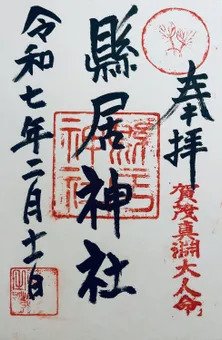 奉拝
賀茂真淵大人命
縣居神社
縣居神社
令和七年二月十一日